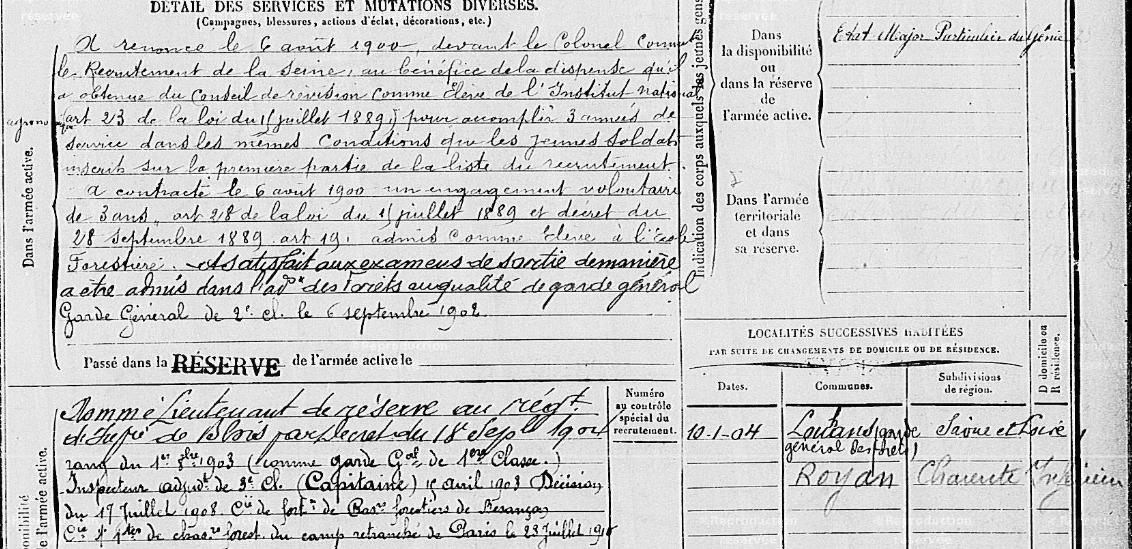 DÉTAIL DES SERVICES ET MUTATIONS DIVERSES.
(Campagnes, blessures, actions d'éclat, décorations, etc.)
A renoncé le 6 août 1900, devant le Colonel Comm
le Recrutement de la Seine, au bénéfice de la dispense qu'il
a obtenue du Conseil de révision comme Elève de l'Institut national
agrono
(art 23 de la loi du 15 juillet 1889) pour accomplir 3 années de
service dans les mêmes conditions que les jeunes soldats
inscrits sur la première partie de la liste du recrutement.
A contracté le 6 août 1900 un engagement volontaire
de 3 ans, art 28 de la loi du 15 juillet 1889 et décret du
28 septembre 1889 art 19, admis comme Elève à l'Ecole
Forestière. A satisfait aux examens de sortie de manière
a etre admis dans l'ad° des Forêts en qualité de garde général
Garde Général de 2e cl. le 6 septembre 1902
Dans l'armée active.
Passé dans la RÉSERVE de l'armée active le
Nommé Lieutenant de réserve au régt
de Blois par decret du 18 Sept 1904
rang du 1er 8bre 1903 (comme garde Gal de 1ère Classe.)
Inspecteur adjt de 3e Cl. (Capitaine) 1er avril 1908 Décision
du 17 Juillet 1908. Cie de fort. de Bas. forestiers de Besançon
Cie de chas. forest. du camp retranché de Paris le 23 Juillet 1910
ponibilité
de l'armée active.
Numéro
au contrôle
spécial du
recrutement.
Indication des corps auxquels les jeunes gens
Dans
la disponibilité
ou
dans la réserve
de
l'armée active.
Etat Major Particulier du Génie
Dans l'armée
territoriale
et dans
sa réserve.
LOCALITÉS SUCCESSIVES HABITÉES
PAR SUITE DE CHANGEMENTS DE DOMICILE OU DE RÉSIDENCE.
Dates. Communes. Subdivisions de région. D domicile ou R résidence.
10-1-04 Louhans (garde général des forêts) Saône et Loire
Royan Charente Inférieure